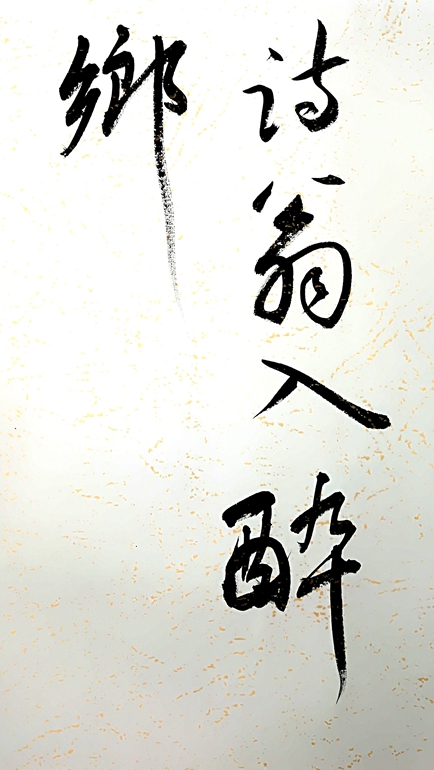 詩翁入醉
鄉